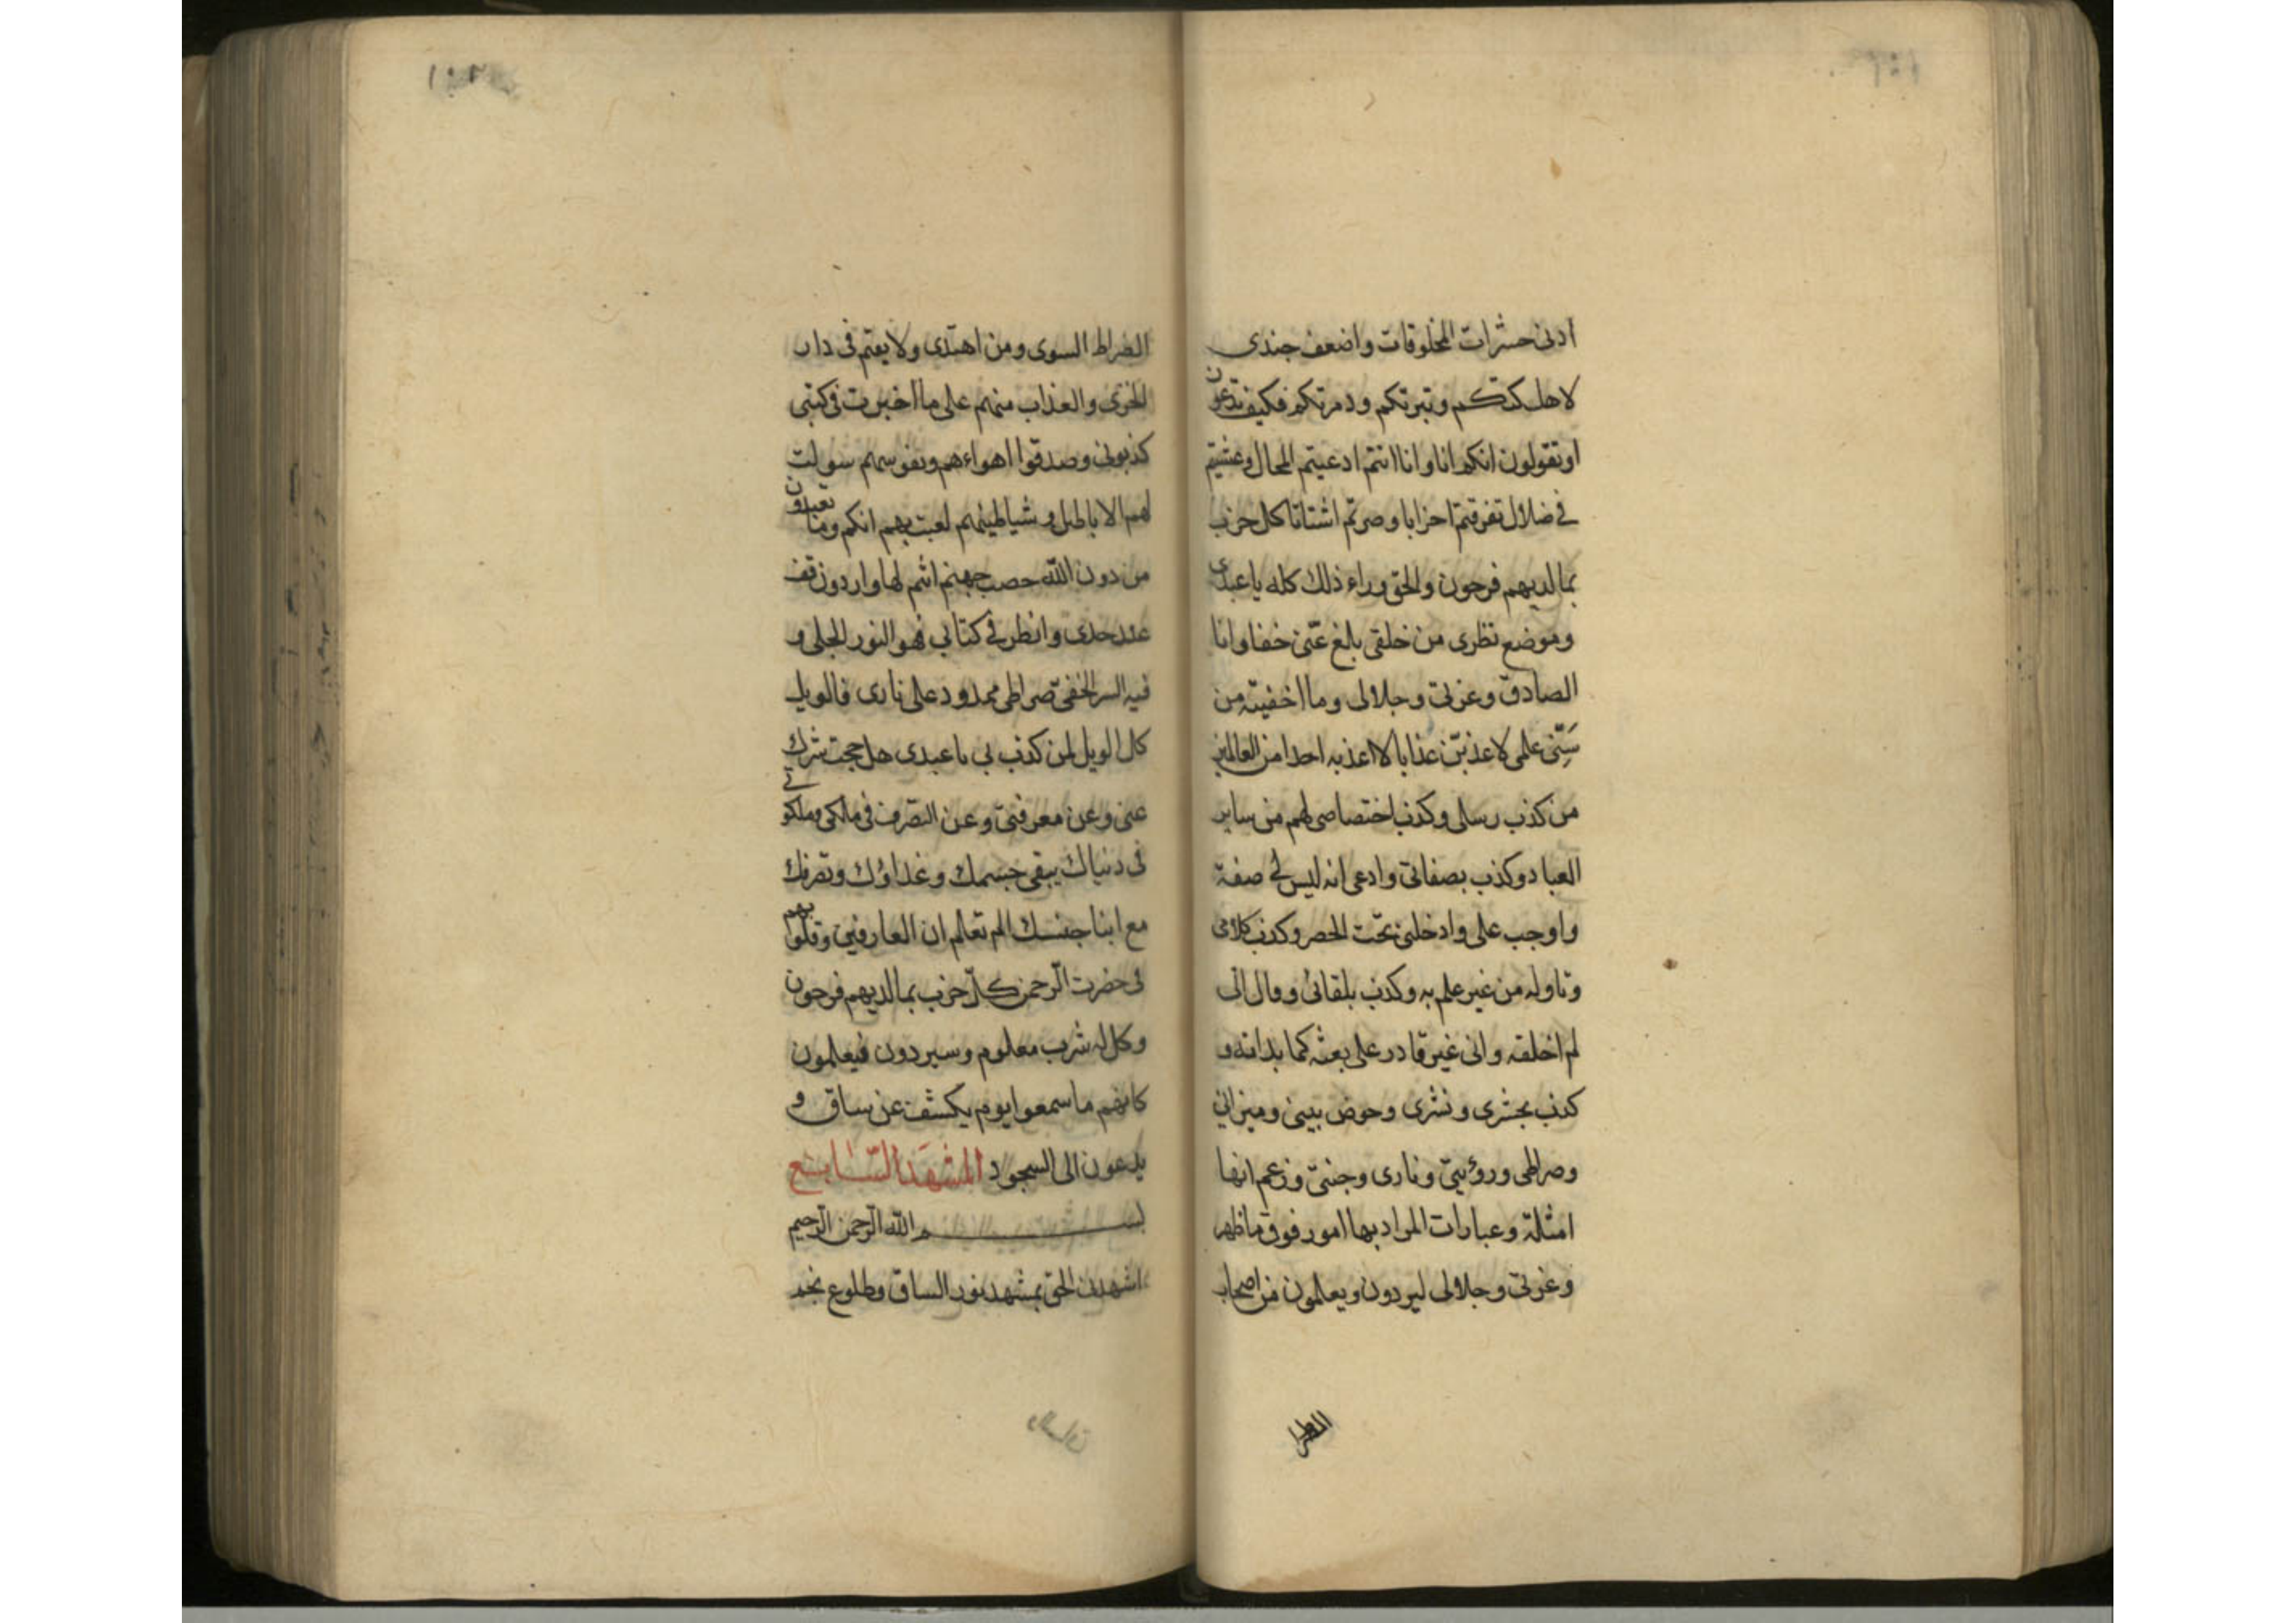 ١٠١
ادنى حشرات المخلوقات واضعف جندى
لاهلكتكم وتبرتكم ودمرتكم فكيف تدعون
او تقولون انكم انا وانا انتم ادعيتم المحال وعشتم
فى ضلال تفرقتم احزابا وصرتم اشتاتا كل حزب
بما لديهم فرحون والحق وراء ذلك كله يا عبدى
وموضع نظرى من خلقى بالغ عنى خفا وانا
الصادق وعزتى وجلالى وما اخفيته من
سنى علمى لاعذبن عذابا لا اعذبه احدا من العالمين
من كذب رسلى وكذب اختصاصى لهم من ساير
العباد وكذب بصفاتى وادعى انه ليس لى صفة
واوجب على وادخلنى تحت الحصر وكذب كلامى
وتاوله من غير علم به وكذب بلقائى وقال انى
لم اخلقه وانى غير قادر على بعثه كما بداته و
كذب بحشرى ونشرى وحوض نبيى وميزانى
وصراطى ورؤيتى ونارى وجنتى وزعم انها
امثلة وعبارات المراد بها امور فوق ما ظهر
وعزتى وجلالى ليردون ويعلمون من اصحاب
الصراط
١٠٢
الصراط السوى ومن اهتدى ولا يعتم فى دار
الخزى والعذاب منهم على ما اخبرت فى كتبى
كذبونى وصدقوا اهواءهم ونفوسهم سولت
لهم الاباطيل وشياطينهم لعبت بهم انكم وما تعبدون
من دون الله حصب جهنم انتم لها واردون قف
عند حدى وانظر فى كتابى فهو النور الجلى و
فيه السر الخفى صراطى ممدود على نارى فالويل
كل الويل لمن كذب بى يا عبدى هل حجبت شرك
عنى وعن معرفتى وعن التصرف فى ملكى وملكوتى
فى دنياك يبقى جسمك وغداؤك وتصرفك
مع ابنا جنسك الم تعلم ان العارفين وقلوبهم
فى حضرت الرحمن كل حزب بما لديهم فرحون
وكل له شرب معلوم وسيردون فيعلمون
كانهم ما سمعوا يوم يكشف عن ساق و
يدعون الى السجود المشهد السابع
بسم الله الرحمن الرحيم
اشهدنى الحق بمشهد نور الساق وطلوع نجم